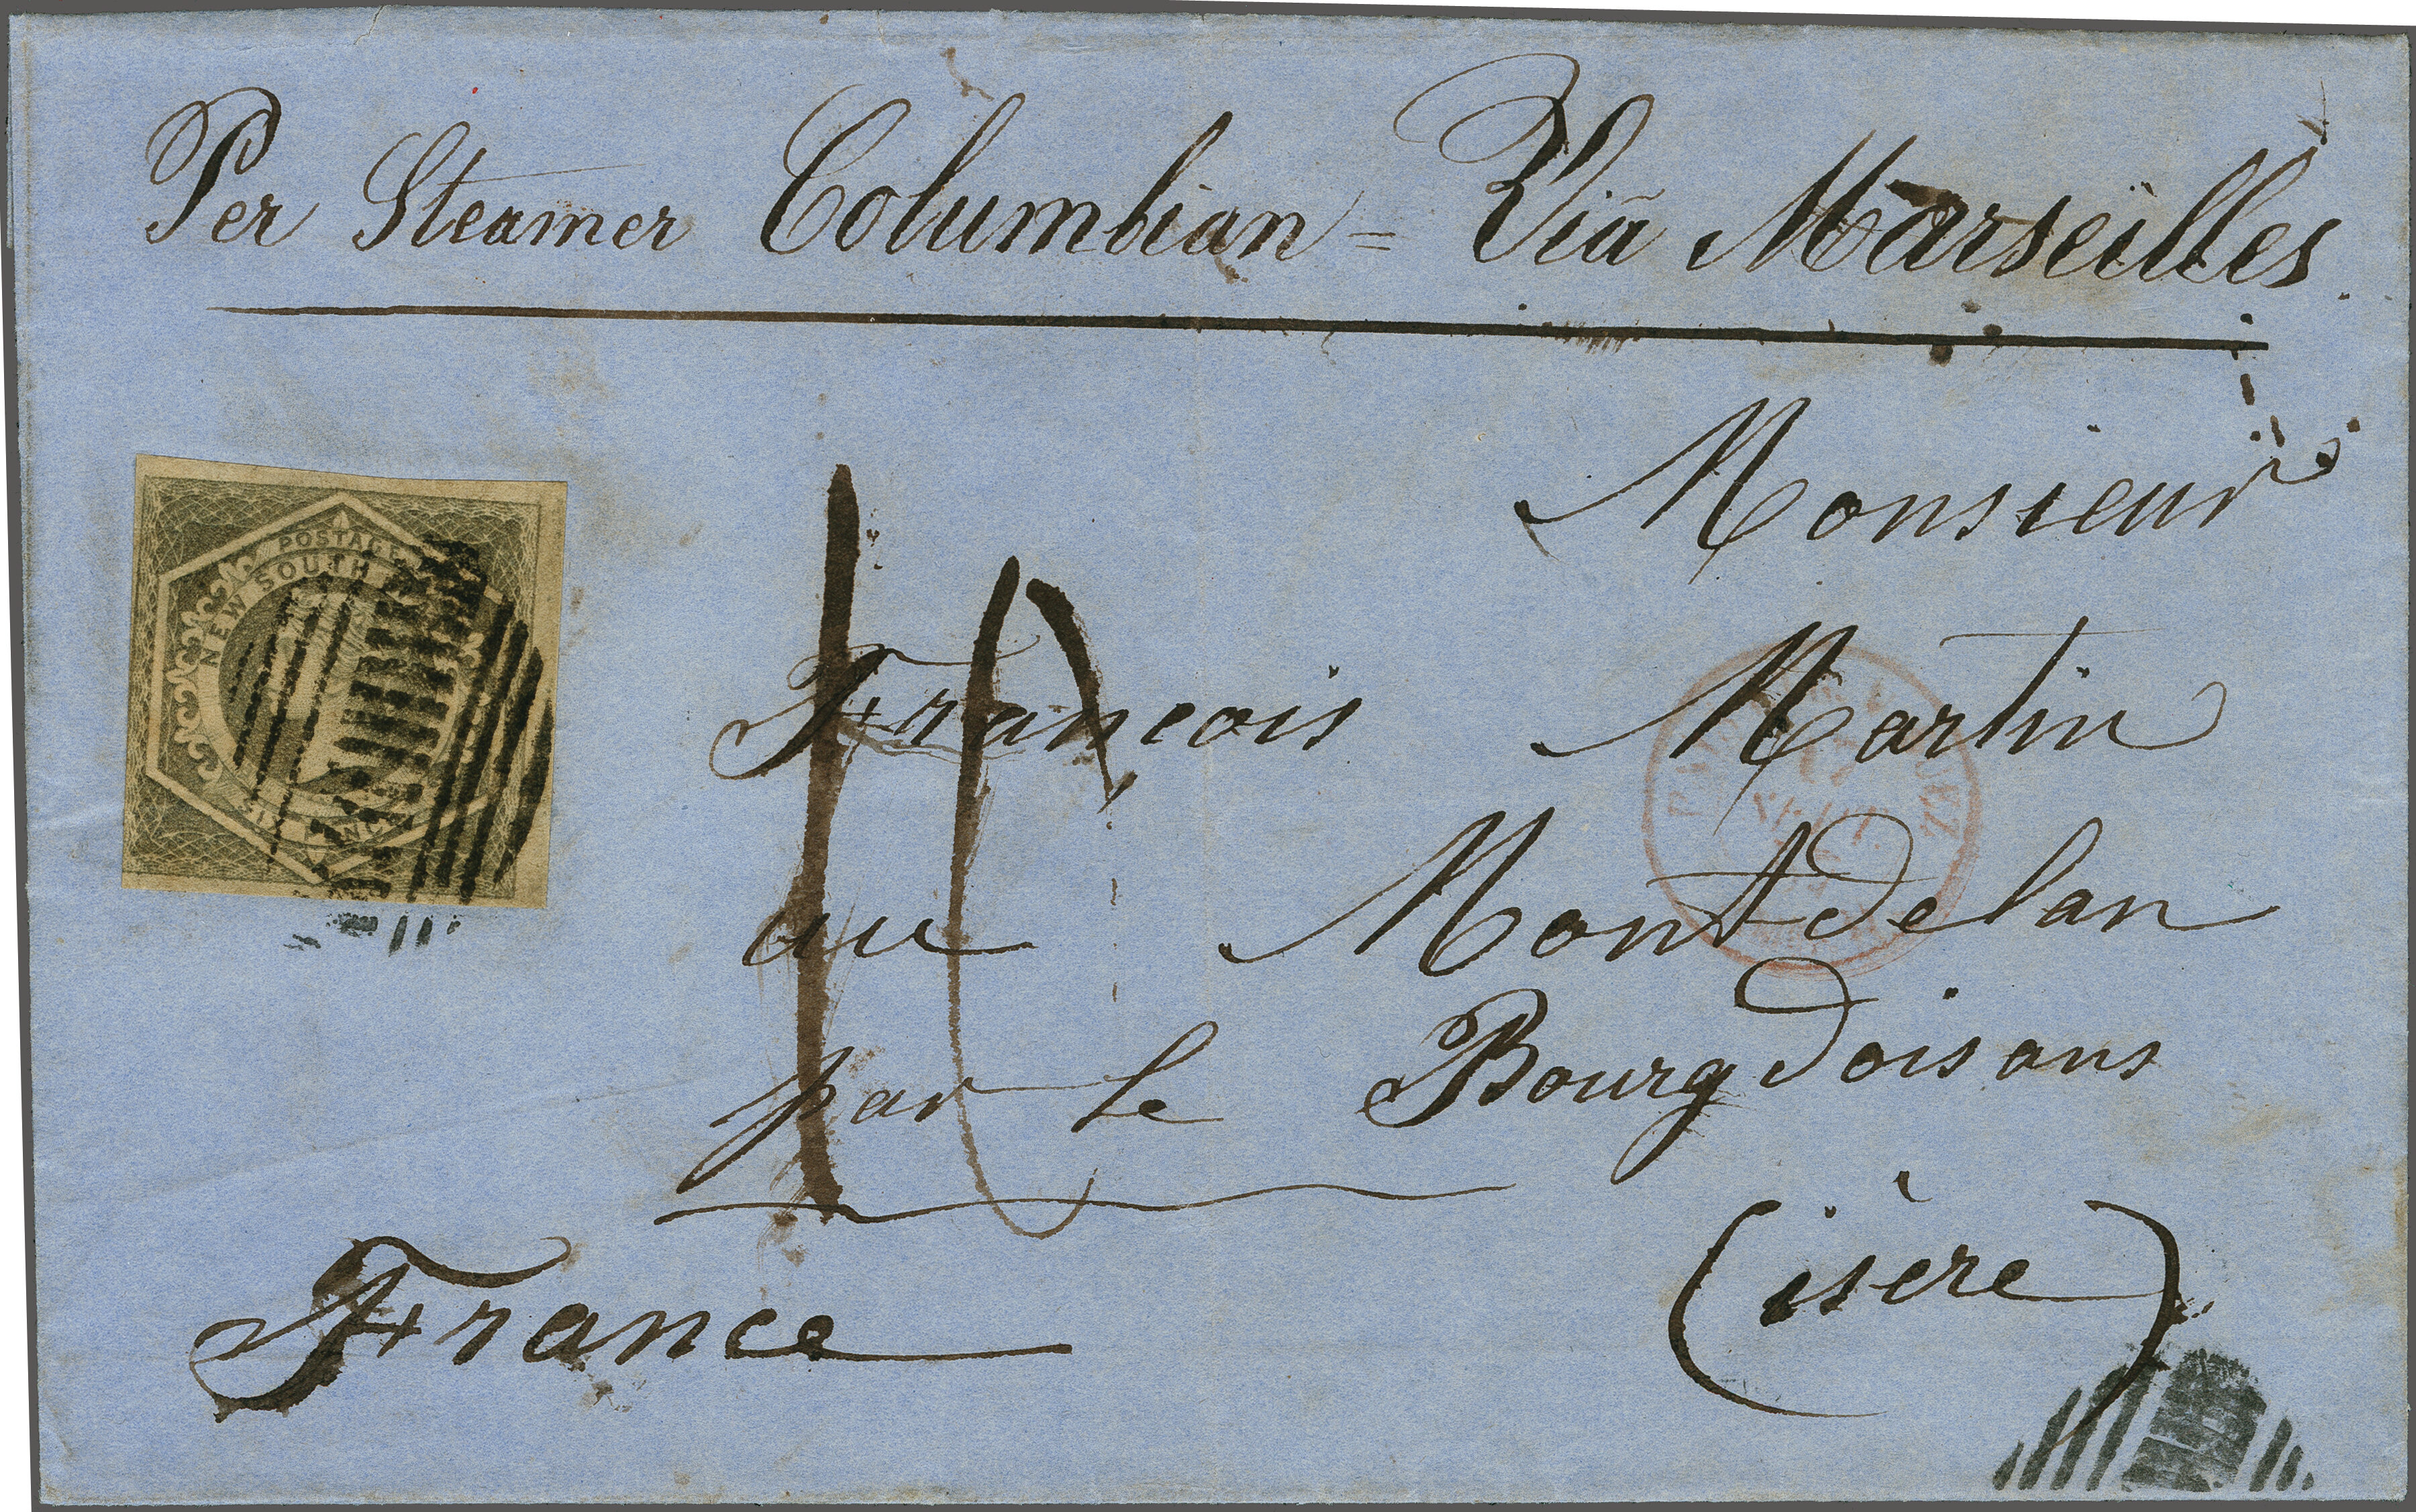 Per Steamer Columbian = Viã Marseilles.
POSTAGE
NEW SOUTH
Monsieur
François Martin
au Mont de lan
par le Bourg doisans
(isère)
France
10